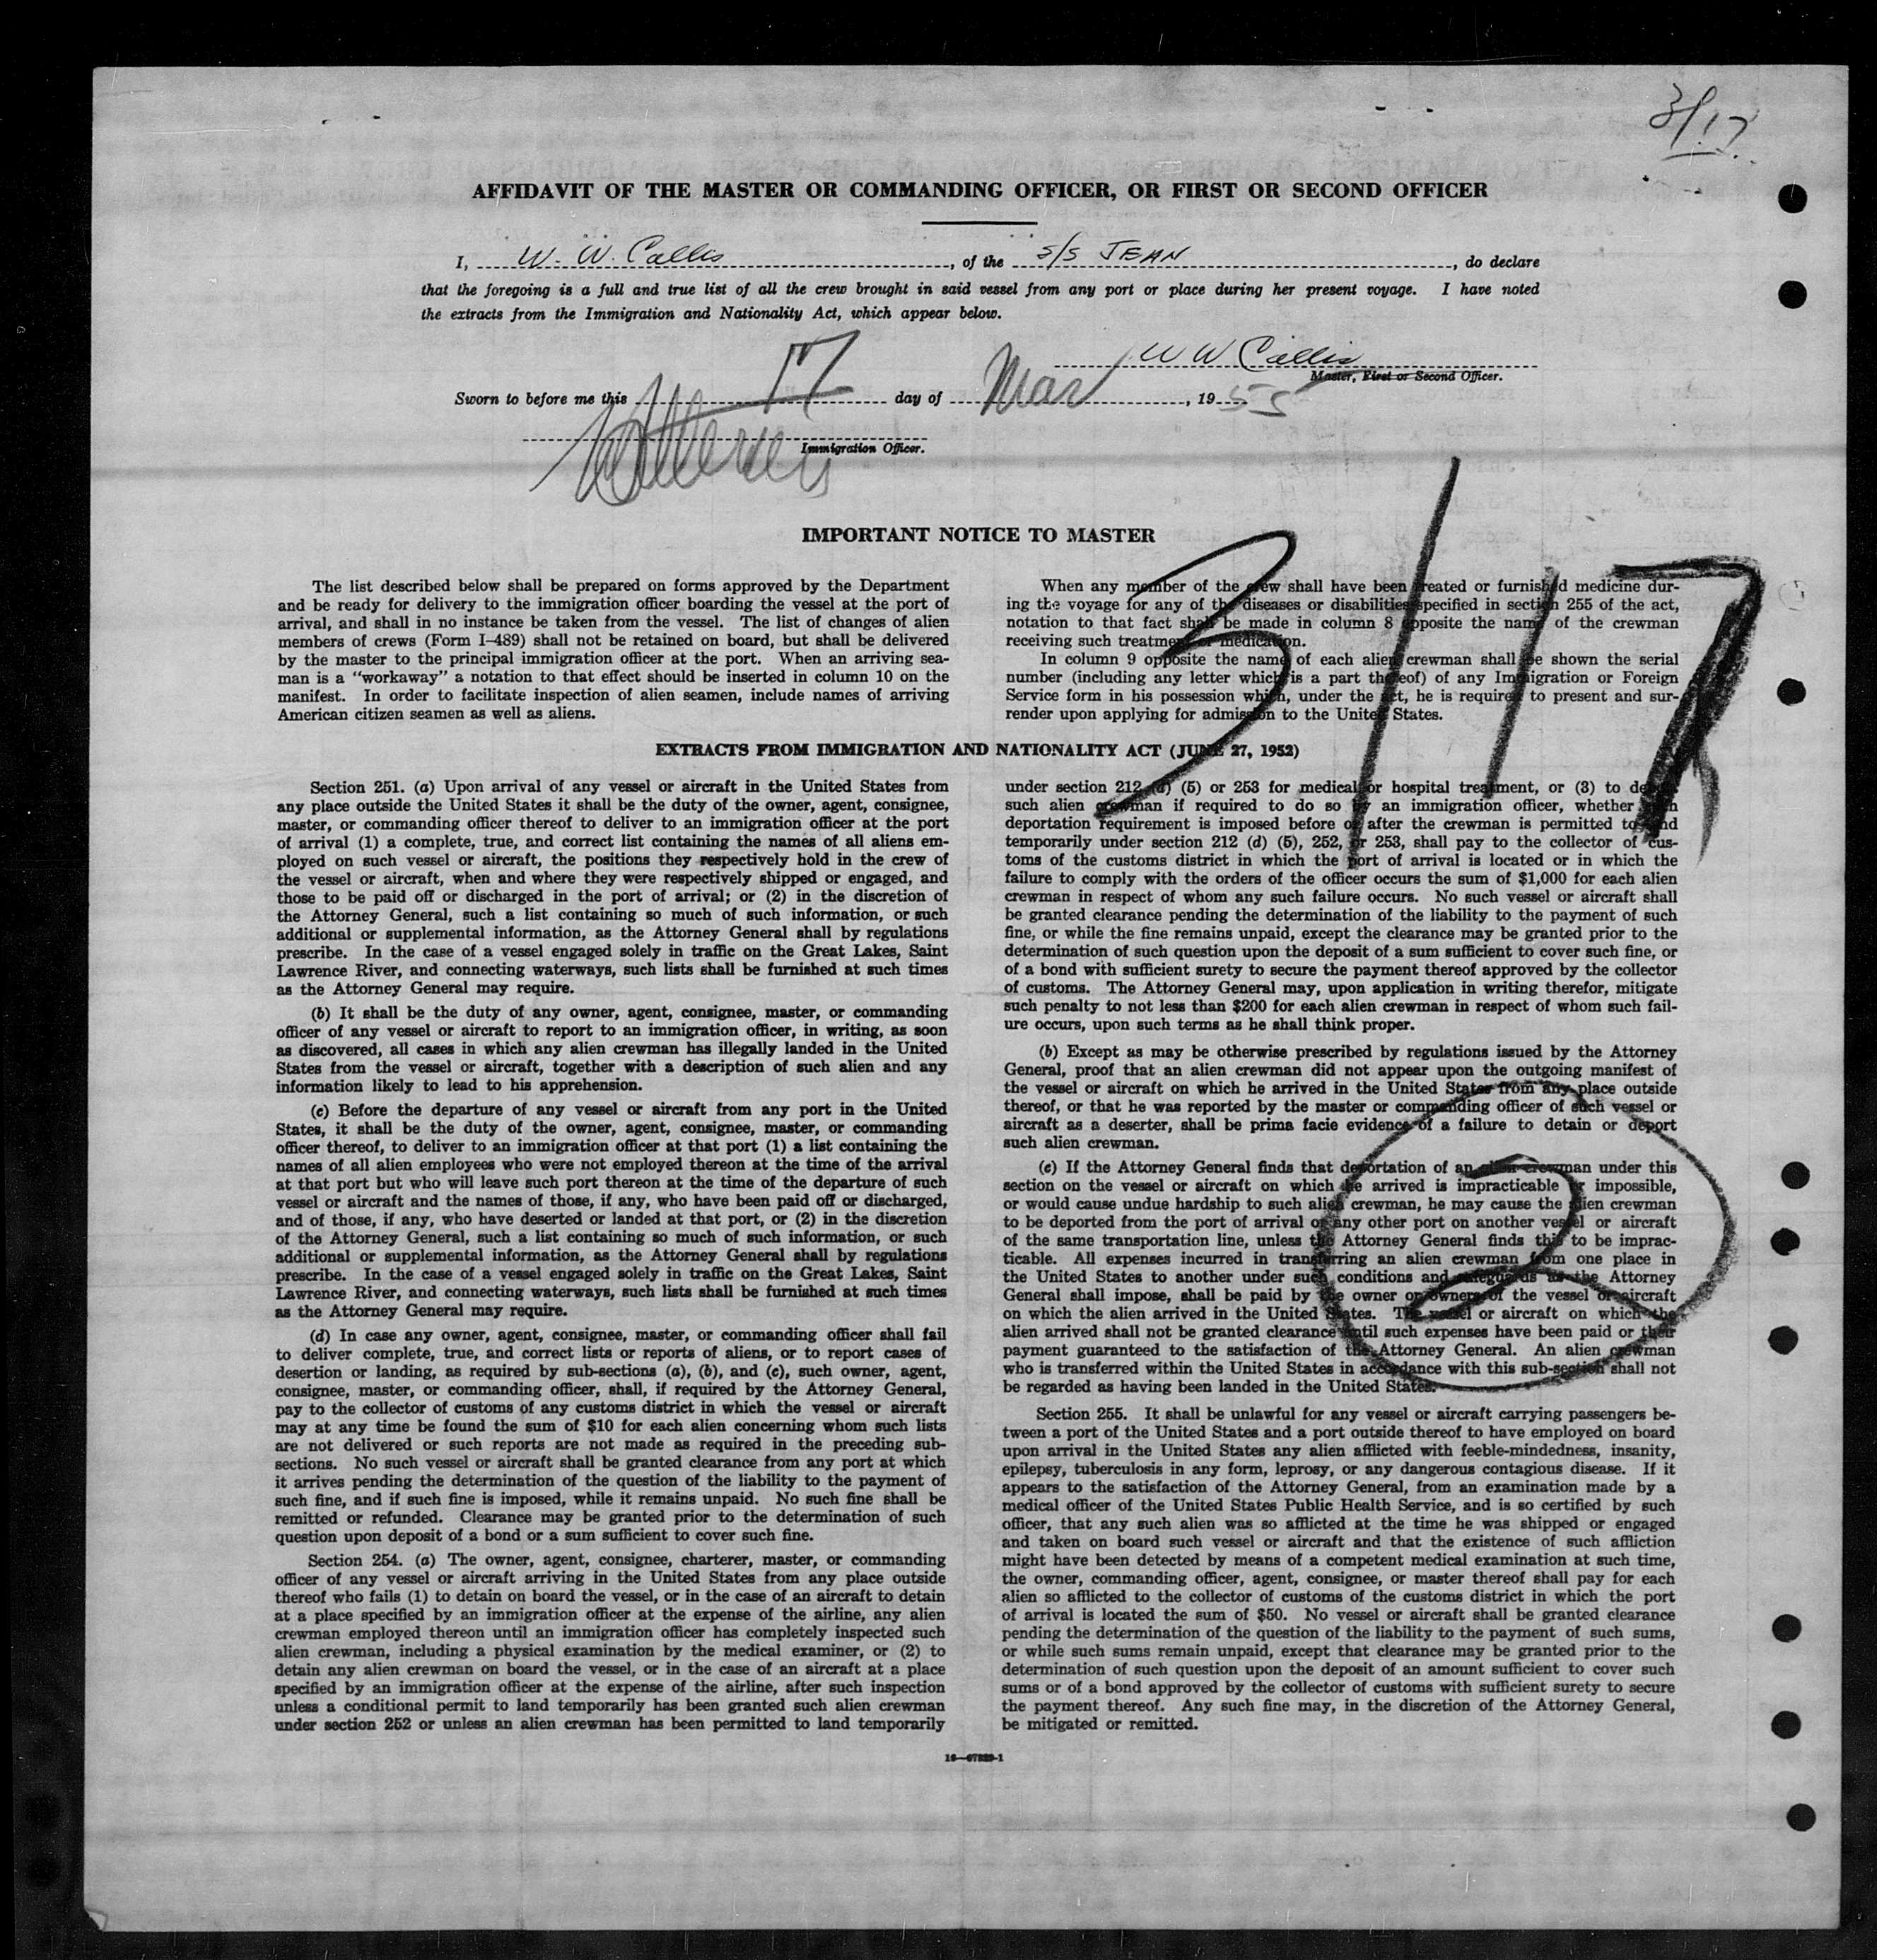 3/17
AFFIDAVIT OF THE MASTER OR COMMANDING OFFICER, OR FIRST OR SECOND OFFICER
I, W. W. Callis, of the S/S JEAN, do declare
that the foregoing is a full and true list of all the crew brought in said vessel from any port or place during her present voyage. I have noted
the extracts from the Immigration and Nationality Act, which appear below.
W W Callis
Master, First or Second Officer.
Sworn to before me this 17 day of Mar, 1955
Immigration Officer.
IMPORTANT NOTICE TO MASTER
The list described below shall be prepared on forms approved by the Department
and be ready for delivery to the immigration officer boarding the vessel at the port of
arrival, and shall in no instance be taken from the vessel. The list of changes of alien
members of crews (Form I–489) shall not be retained on board, but shall be delivered
by the master to the principal immigration officer at the port. When an arriving sea-
man is a "workaway" a notation to that effect should be inserted in column 10 on the
manifest. In order to facilitate inspection of alien seamen, include names of arriving
American citizen seamen as well as aliens.
When any member of the crew shall have been treated or furnished medicine dur-
ing the voyage for any of the diseases or disabilities specified in section 255 of the act,
notation to that fact shall be made in column 8 opposite the name of the crewman
receiving such treatment or medication.
In column 9 opposite the name of each alien crewman shall be shown the serial
number (including any letter which is a part thereof) of any Immigration or Foreign
Service form in his possession which, under the act, he is required to present and sur-
render upon applying for admission to the United States.
3/17
EXTRACTS FROM IMMIGRATION AND NATIONALITY ACT (JUNE 27, 1952)
Section 251. (a) Upon arrival of any vessel or aircraft in the United States from
any place outside the United States it shall be the duty of the owner, agent, consignee,
master, or commanding officer thereof to deliver to an immigration officer at the port
of arrival (1) a complete, true, and correct list containing the names of all aliens em-
ployed on such vessel or aircraft, the positions they respectively hold in the crew of
the vessel or aircraft, when and where they were respectively shipped or engaged, and
those to be paid off or discharged in the port of arrival; or (2) in the discretion of
the Attorney General, such a list containing so much of such information, or such
additional or supplemental information, as the Attorney General shall by regulations
prescribe. In the case of a vessel engaged solely in traffic on the Great Lakes, Saint
Lawrence River, and connecting waterways, such lists shall be furnished at such times
as the Attorney General may require.
(b) It shall be the duty of any owner, agent, consignee, master, or commanding
officer of any vessel or aircraft to report to an immigration officer, in writing, as soon
as discovered, all cases in which any alien crewman has illegally landed in the United
States from the vessel or aircraft, together with a description of such alien and any
information likely to lead to his apprehension.
(c) Before the departure of any vessel or aircraft from any port in the United
States, it shall be the duty of the owner, agent, consignee, master, or commanding
officer thereof, to deliver to an immigration officer at that port (1) a list containing the
names of all alien employees who were not employed thereon at the time of the arrival
at that port but who will leave such port thereon at the time of the departure of such
vessel or aircraft and the names of those, if any, who have been paid off or discharged,
and of those, if any, who have deserted or landed at that port, or (2) in the discretion
of the Attorney General, such a list containing so much of such information, or such
additional or supplemental information, as the Attorney General shall by regulations
prescribe. In the case of a vessel engaged solely in traffic on the Great Lakes, Saint
Lawrence River, and connecting waterways, such lists shall be furnished at such times
as the Attorney General may require.
(d) In case any owner, agent, consignee, master, or commanding officer shall fail
to deliver complete, true, and correct lists or reports of aliens, or to report cases of
desertion or landing, as required by sub-sections (a), (b), and (c), such owner, agent,
consignee, master, or commanding officer, shall, if required by the Attorney General,
pay to the collector of customs of any customs district in which the vessel or aircraft
may at any time be found the sum of $10 for each alien concerning whom such lists
are not delivered or such reports are not made as required in the preceding sub-
sections. No such vessel or aircraft shall be granted clearance from any port at which
it arrives pending the determination of the question of the liability to the payment of
such fine, and if such fine is imposed, while it remains unpaid. No such fine shall be
remitted or refunded. Clearance may be granted prior to the determination of such
question upon deposit of a bond or a sum sufficient to cover such fine.
Section 254. (a) The owner, agent, consignee, charterer, master, or commanding
officer of any vessel or aircraft arriving in the United States from any place outside
thereof who fails (1) to detain on board the vessel, or in the case of an aircraft to detain
at a place specified by an immigration officer at the expense of the airline, any alien
crewman employed thereon until an immigration officer has completely inspected such
alien crewman, including a physical examination by the medical examiner, or (2) to
detain any alien crewman on board the vessel, or in the case of an aircraft at a place
specified by an immigration officer at the expense of the airline, after such inspection
unless a conditional permit to land temporarily has been granted such alien crewman
under section 252 or unless an alien crewman has been permitted to land temporarily
under section 212 (d) (5) or 253 for medical or hospital treatment, or (3) to deport
such alien crewman if required to do so by an immigration officer, whether such
deportation requirement is imposed before or after the crewman is permitted to land
temporarily under section 212 (d) (5), 252, or 253, shall pay to the collector of cus-
toms of the customs district in which the port of arrival is located or in which the
failure to comply with the orders of the officer occurs the sum of $1,000 for each alien
crewman in respect of whom any such failure occurs. No such vessel or aircraft shall
be granted clearance pending the determination of the liability to the payment of such
fine, or while the fine remains unpaid, except the clearance may be granted prior to the
determination of such question upon the deposit of a sum sufficient to cover such fine, or
of a bond with sufficient surety to secure the payment thereof approved by the collector
of customs. The Attorney General may, upon application in writing therefor, mitigate
such penalty to not less than $200 for each alien crewman in respect of whom such fail-
ure occurs, upon such terms as he shall think proper.
(b) Except as may be otherwise prescribed by regulations issued by the Attorney
General, proof that an alien crewman did not appear upon the outgoing manifest of
the vessel or aircraft on which he arrived in the United States from any place outside
thereof, or that he was reported by the master or commanding officer of such vessel or
aircraft as a deserter, shall be prima facie evidence of a failure to detain or deport
such alien crewman.
(c) If the Attorney General finds that deportation of an alien crewman under this
section on the vessel or aircraft on which he arrived is impracticable or impossible,
or would cause undue hardship to such alien crewman, he may cause the alien crewman
to be deported from the port of arrival or any other port on another vessel or aircraft
of the same transportation line, unless the Attorney General finds this to be imprac-
ticable. All expenses incurred in transferring an alien crewman from one place in
the United States to another under such conditions and safeguards as the Attorney
General shall impose, shall be paid by the owner or owners of the vessel or aircraft
on which the alien arrived in the United States. The vessel or aircraft on which the
alien arrived shall not be granted clearance until such expenses have been paid or their
payment guaranteed to the satisfaction of the Attorney General. An alien crewman
who is transferred within the United States in accordance with this sub-section shall not
be regarded as having been landed in the United States.
2
Section 255. It shall be unlawful for any vessel or aircraft carrying passengers be-
tween a port of the United States and a port outside thereof to have employed on board
upon arrival in the United States any alien afflicted with feeble-mindedness, insanity,
epilepsy, tuberculosis in any form, leprosy, or any dangerous contagious disease. If it
appears to the satisfaction of the Attorney General, from an examination made by a
medical officer of the United States Public Health Service, and is so certified by such
officer, that any such alien was so afflicted at the time he was shipped or engaged
and taken on board such vessel or aircraft and that the existence of such affliction
might have been detected by means of a competent medical examination at such time,
the owner, commanding officer, agent, consignee, or master thereof shall pay for each
alien so afflicted to the collector of customs of the customs district in which the port
of arrival is located the sum of $50. No vessel or aircraft shall be granted clearance
pending the determination of the question of the liability to the payment of such sums,
or while such sums remain unpaid, except that clearance may be granted prior to the
determination of such question upon the deposit of an amount sufficient to cover such
sums or of a bond approved by the collector of customs with sufficient surety to secure
the payment thereof. Any such fine may, in the discretion of the Attorney General,
be mitigated or remitted.